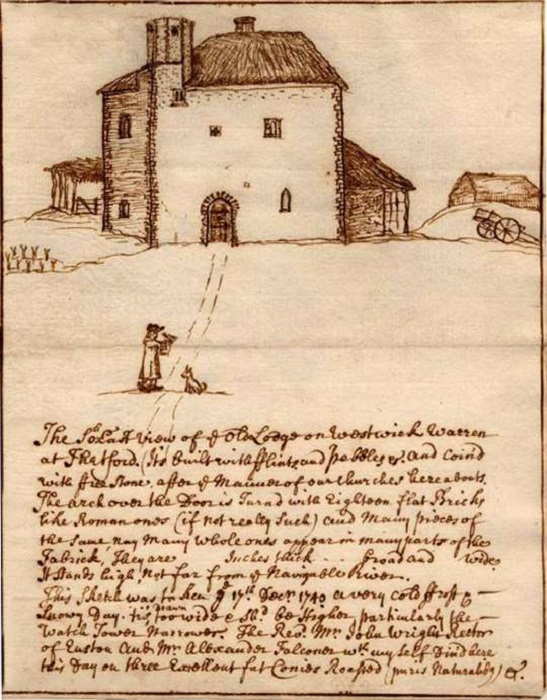 The So.East View of ye Old Lodge on Westwick Warren
at Thetford. (Its built with fflints and pebbles &c. and Coind
with ffree Stone, after ye Manner of our Churches hereabouts.
The arch over the Door is Turnd with Eighteen flat Bricks
like Roman ones (if not really Such) and Many pieces of
the Same, nay Many whole ones appear in many parts of the
Fabrick, They are Inches thick - - broad and wide
It Stands high, Not far from ye Navigable River.
This Sketch was taken ye 17th Decr. 1740 a very cold ffrost &
Snowy Day. tis drawn too wide & Shd. be Higher particularly the
Watch Tower Narrower. The Revd. Mr. John Wright Rector
of Euston and Mr. Alexander Falconer wth. my Self Dind here
this Day on three Excellent fat Conies Roasted (puris Naturalibq) &c.